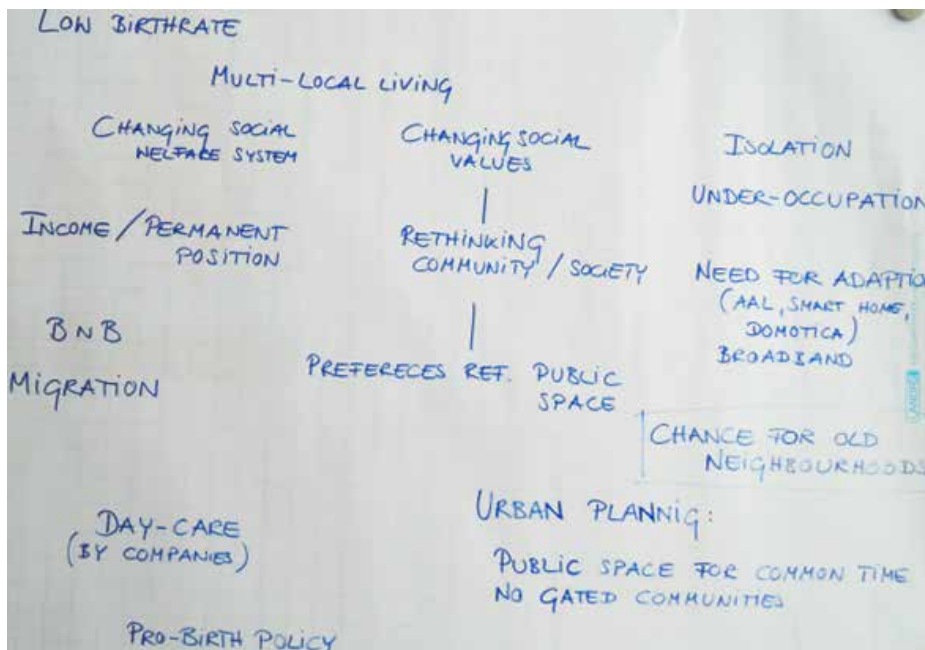 LOW BIRTHRATE
MULTI-LOCAL LIVING
CHANGING SOCIAL
WELFARE SYSTEM
CHANGING SOCIAL
VALUES
ISOLATION
UNDER-OCCUPATION
INCOME / PERMANENT
POSITION
RETHINKING
COMMUNITY / SOCIETY
NEED FOR ADAPTIO
(AAL, SMART HOME,
DOMOTICA)
BROADBAND
BNB
MIGRATION
PREFERECES REF. PUBLIC
SPACE
CHANCE FOR OLD
NEIGHBOURHOODS
DAY-CARE
(BY COMPANIES)
URBAN PLANNIG:
PUBLIC SPACE FOR COMMON TIME
NO GATED COMMUNITIES
PRO-BIRTH POLICY